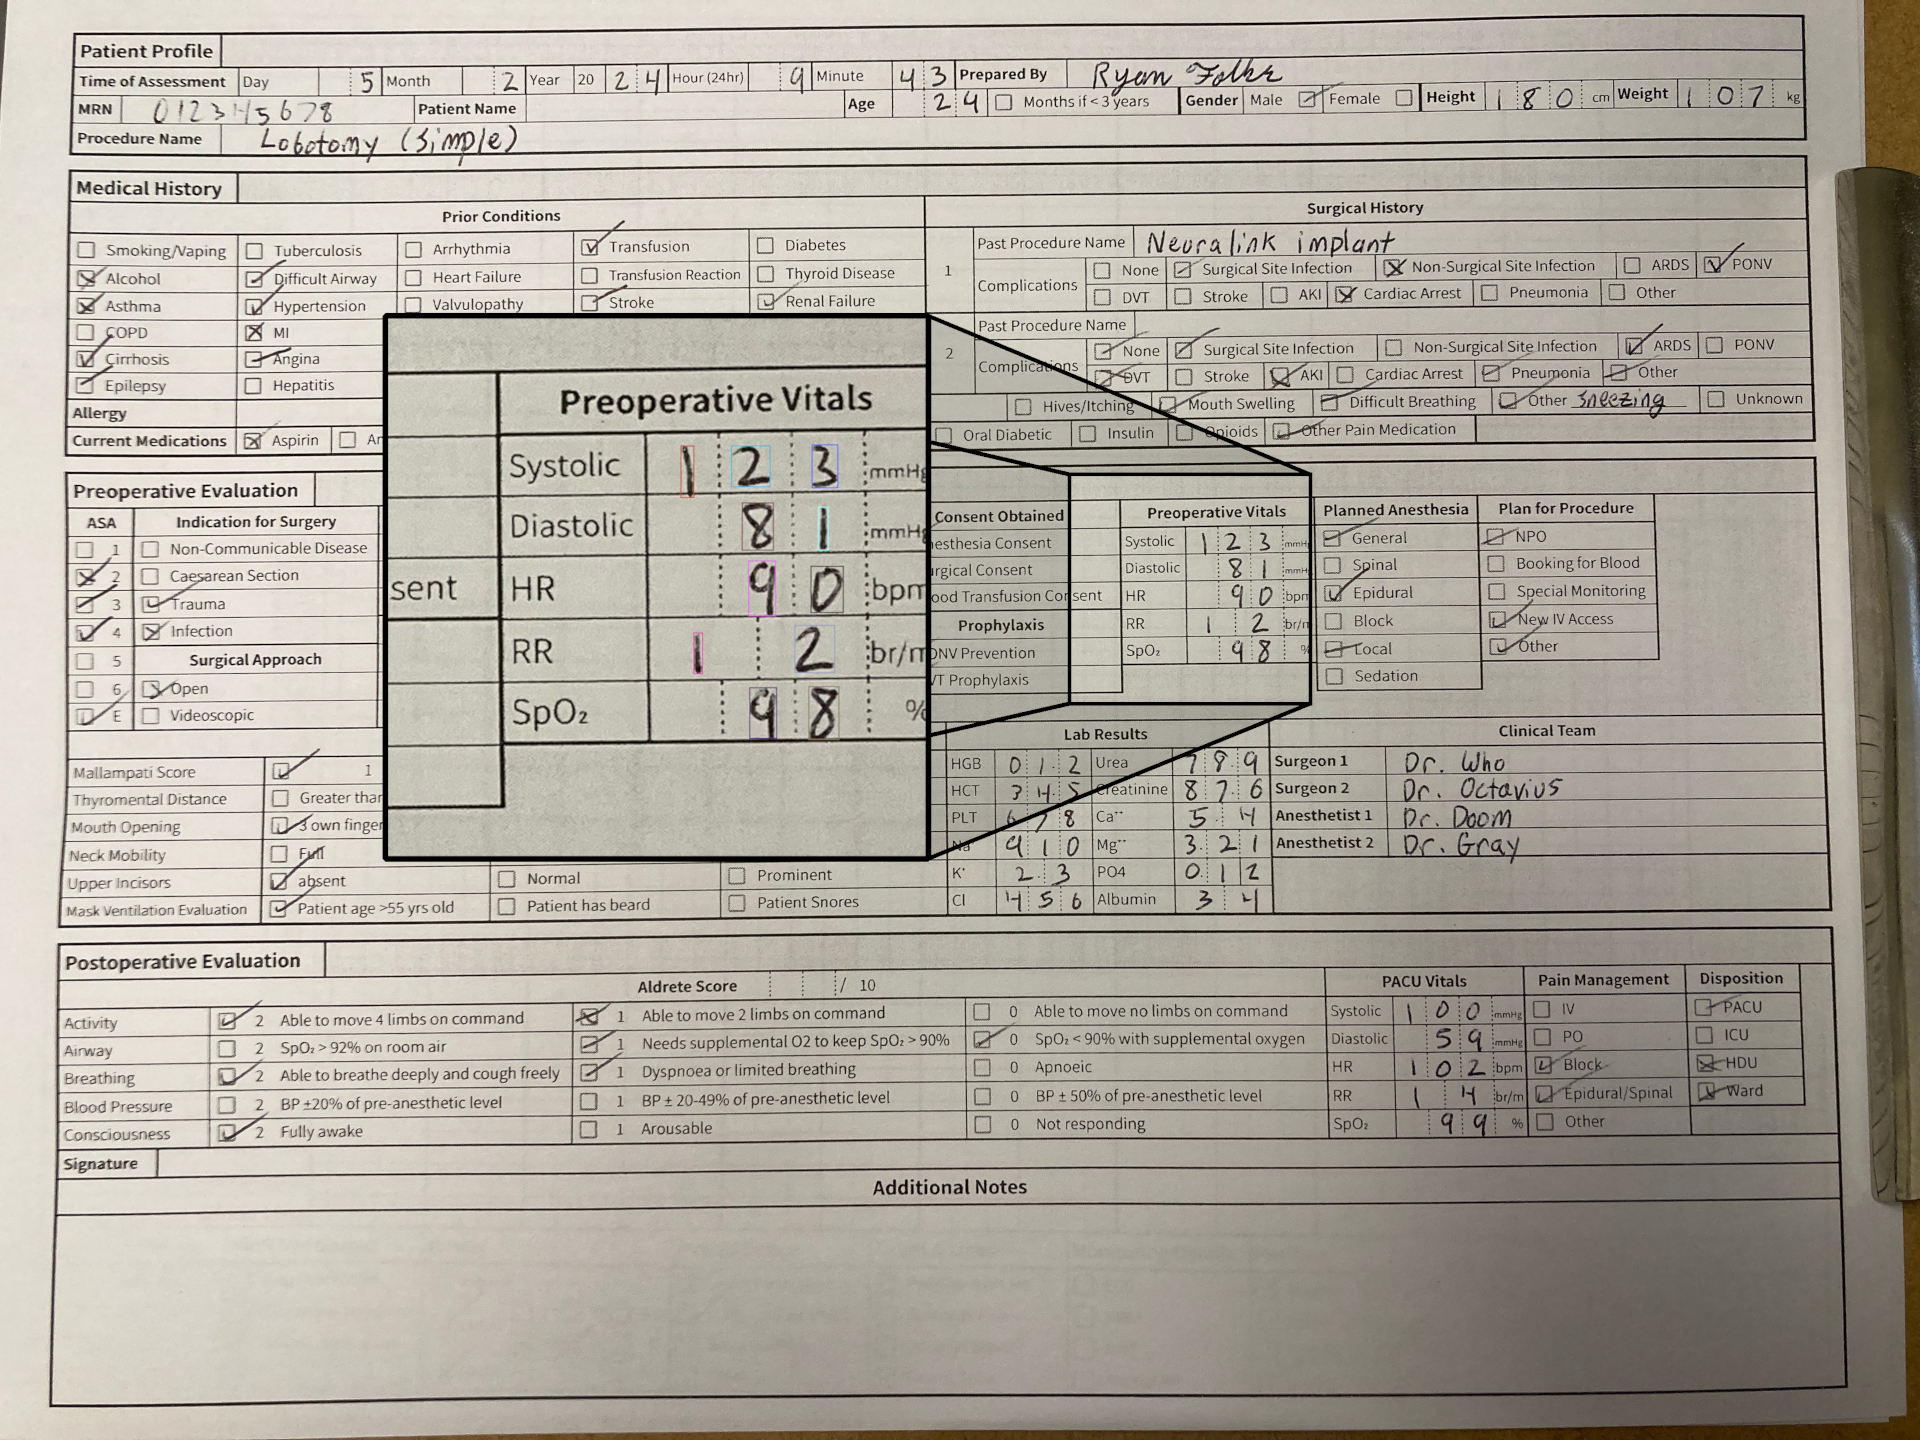 Patient Profile
Time of Assessment Day 5 Month 2 Year 20 24 Hour (24hr) 9 Minute 43 Prepared By Ryan Folkr
MRN 012345678 Patient Name Age 24 Months if < 3 years Gender Male Female Height 180 cm Weight 107 kg
Procedure Name Lobotomy (simple)
Medical History
Prior Conditions
Smoking/Vaping Tuberculosis Arrhythmia Transfusion Diabetes
Alcohol Difficult Airway Heart Failure Transfusion Reaction Thyroid Disease
Asthma Hypertension Valvulopathy Stroke Renal Failure
COPD MI
Cirrhosis Angina
Epilepsy Hepatitis
Allergy
Current Medications Aspirin
Surgical History
1 Past Procedure Name Neuralink implant
Complications None Surgical Site Infection Non-Surgical Site Infection ARDS PONV
DVT Stroke AKI Cardiac Arrest Pneumonia Other
2 Past Procedure Name
Complications None Surgical Site Infection Non-Surgical Site Infection ARDS PONV
DVT Stroke AKI Cardiac Arrest Pneumonia Other
Hives/Itching Mouth Swelling Difficult Breathing Other Sneezing Unknown
Oral Diabetic Insulin Opioids Other Pain Medication
Preoperative Vitals
Systolic 123 mmHg
Diastolic 81 mmHg
sent HR 90 bpm
RR 12 br/m
SpO₂ 98 %
Preoperative Evaluation
ASA Indication for Surgery
1 Non-Communicable Disease
2 Caesarean Section
3 Trauma
4 Infection
5 Surgical Approach
6 Open
E Videoscopic
Consent Obtained
esthesia Consent
rgical Consent
ood Transfusion Consent
Prophylaxis
ONV Prevention
VT Prophylaxis
Preoperative Vitals
Systolic 123 mmHg
Diastolic 81 mmHg
HR 90 bpm
RR 12 br/m
SpO₂ 98 %
Planned Anesthesia
General
Spinal
Epidural
Block
Local
Sedation
Plan for Procedure
NPO
Booking for Blood
Special Monitoring
New IV Access
Other
Mallampati Score 1
Thyromental Distance Greater than
Mouth Opening 3 own finger
Neck Mobility Full
Upper Incisors absent Normal Prominent
Mask Ventilation Evaluation Patient age >55 yrs old Patient has beard Patient Snores
Lab Results
HGB 01.2 Urea 789
HCT 34.5 Creatinine 87.6
PLT 678 Ca⁺⁺ 5.4
Na 910 Mg⁺⁺ 3.21
K⁺ 2.3 PO4 0.12
Cl 456 Albumin 34
Clinical Team
Surgeon 1 Dr. Who
Surgeon 2 Dr. Octavius
Anesthetist 1 Dr. Doom
Anesthetist 2 Dr. Gray
Postoperative Evaluation
Aldrete Score / 10
Activity 2 Able to move 4 limbs on command 1 Able to move 2 limbs on command 0 Able to move no limbs on command
Airway 2 SpO₂ > 92% on room air 1 Needs supplemental O2 to keep SpO₂ > 90% 0 SpO₂ < 90% with supplemental oxygen
Breathing 2 Able to breathe deeply and cough freely 1 Dyspnoea or limited breathing 0 Apnoeic
Blood Pressure 2 BP ±20% of pre-anesthetic level 1 BP ± 20-49% of pre-anesthetic level 0 BP ± 50% of pre-anesthetic level
Consciousness 2 Fully awake 1 Arousable 0 Not responding
PACU Vitals
Systolic 100 mmHg
Diastolic 59 mmHg
HR 102 bpm
RR 14 br/m
SpO₂ 99 %
Pain Management
IV
PO
Block
Epidural/Spinal
Other
Disposition
PACU
ICU
HDU
Ward
Signature
Additional Notes